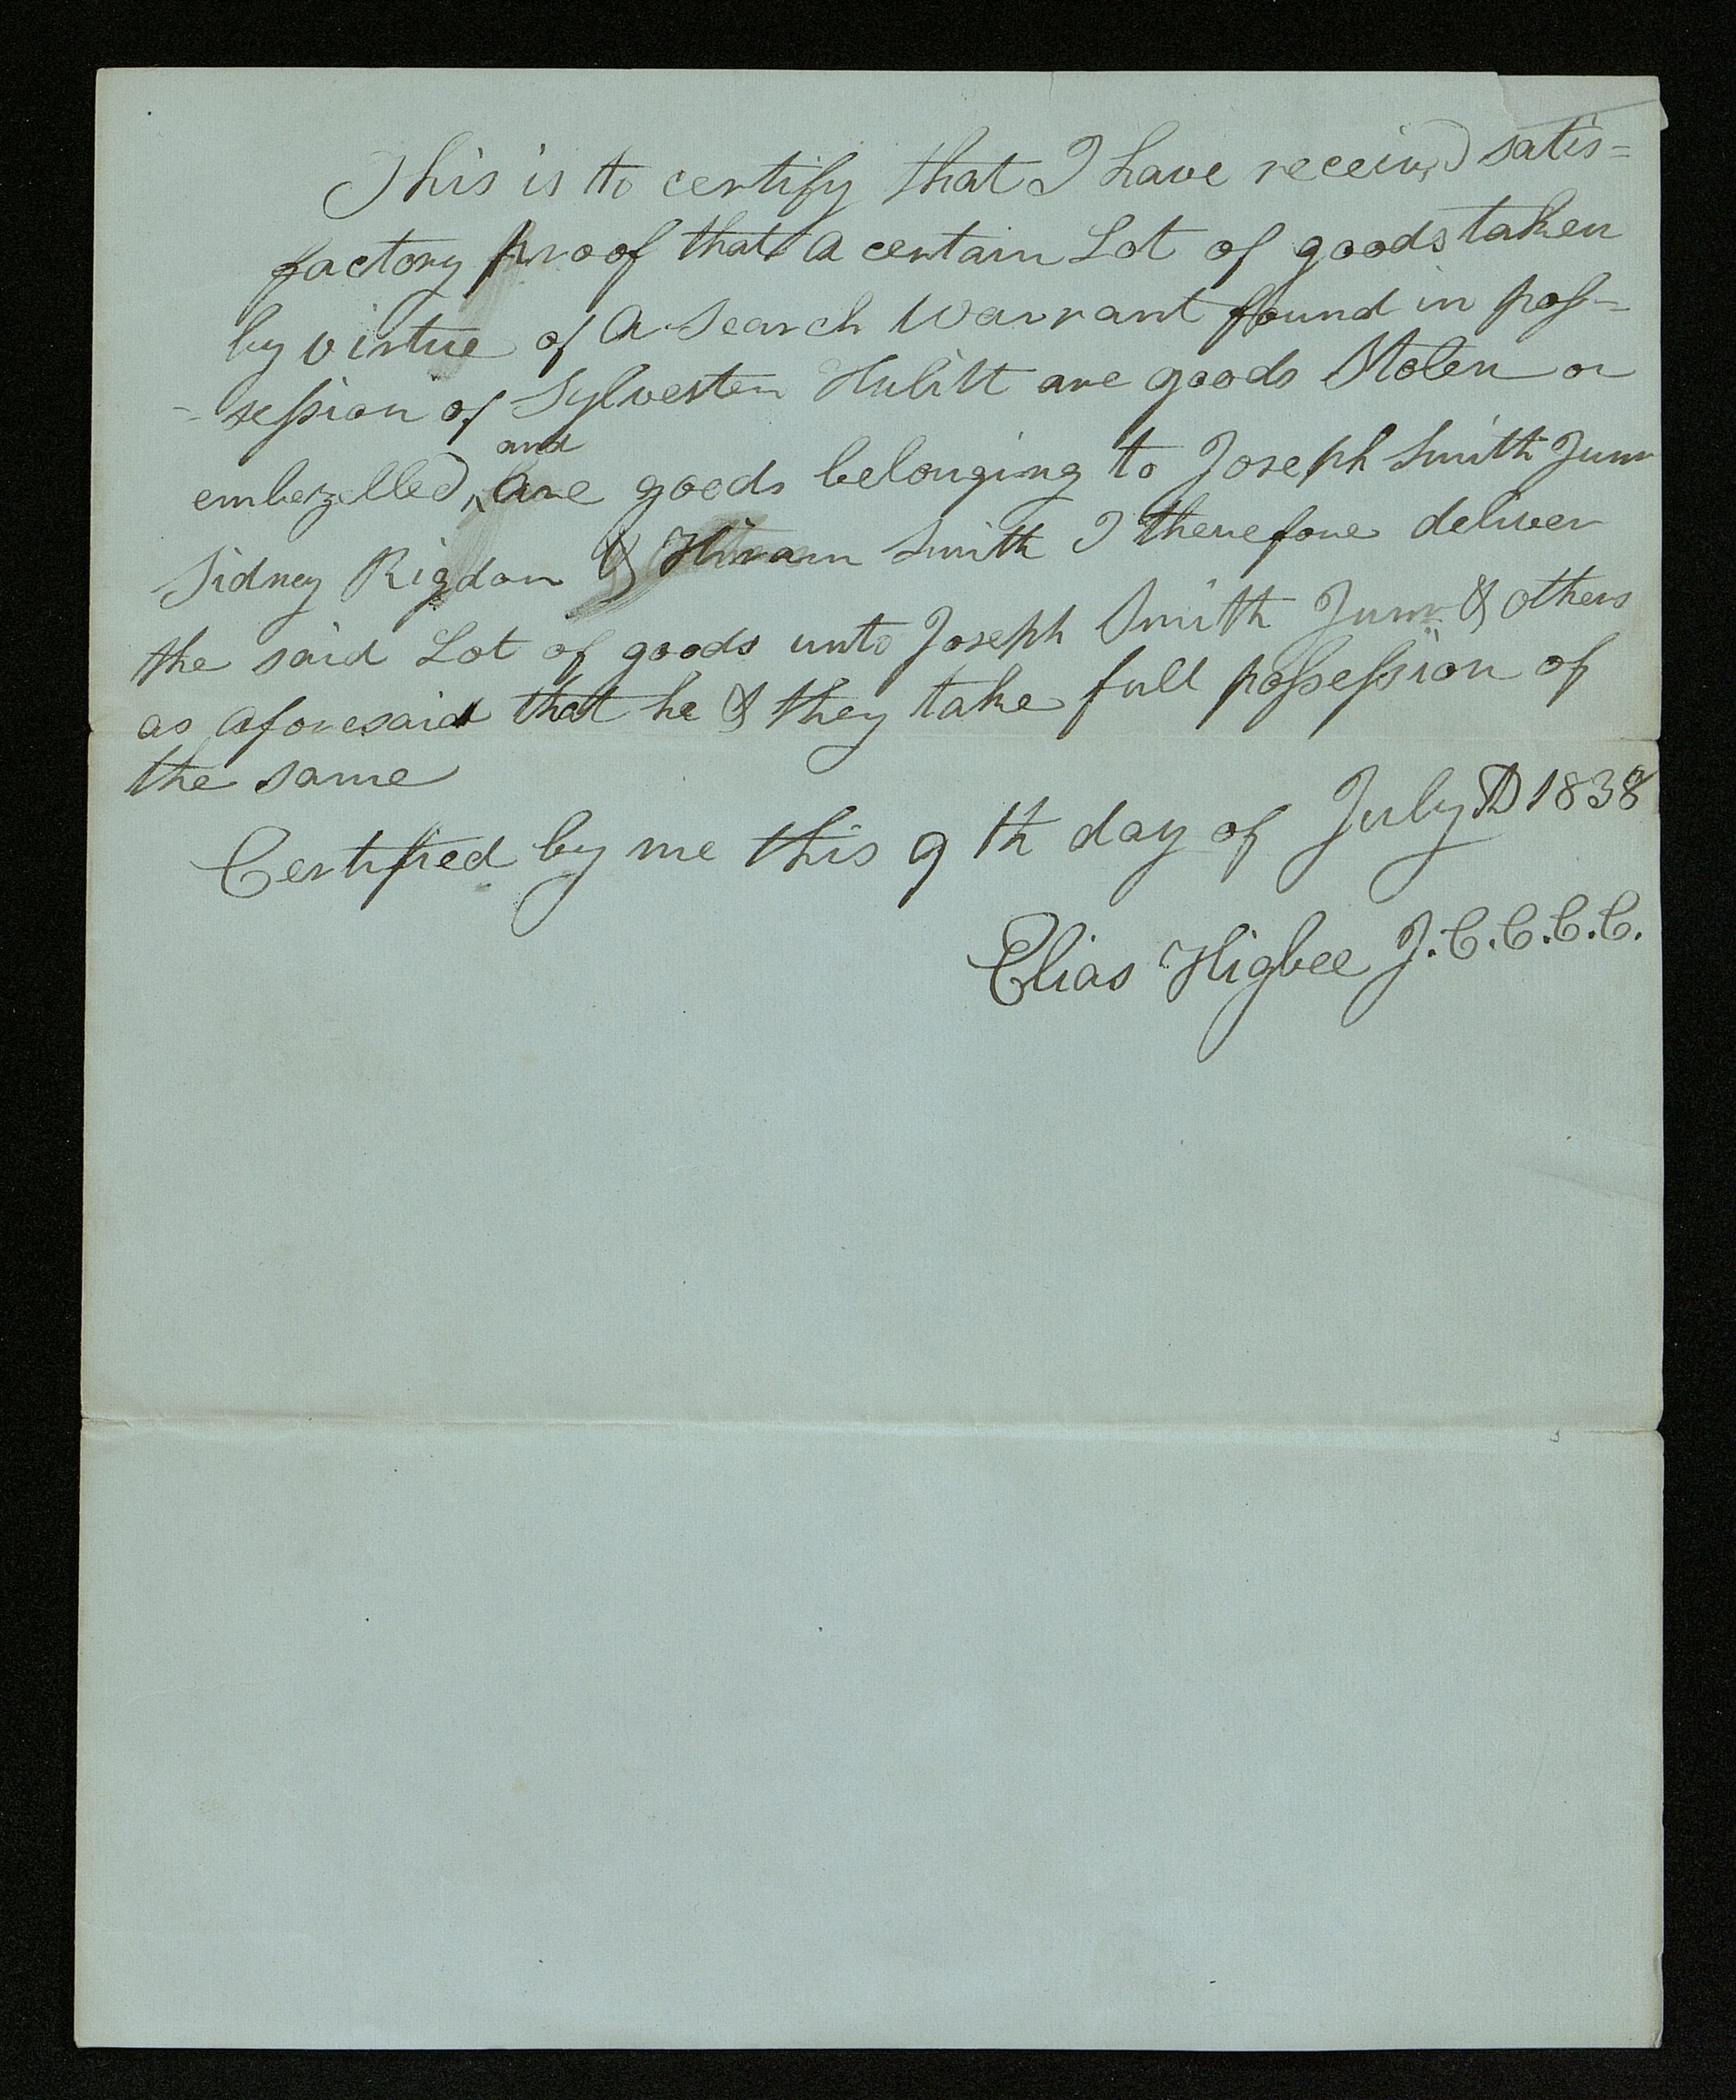 This is to certify that I have received satis=
factory proof that a certain Lot of goods taken
by virtue of a search Warrant found in pos=
=session of Sylvester Hulitt are goods Stolen or
and
embezzelled, are goods belonging to Joseph Smith Junr
Sidney Rigdon & Hiram Smith I therefore deliver
the said Lot of goods unto Joseph Smith Junr & others
as aforesaid that he & they take full possession of
the same
Certified by me this 9th day of July AD 1838
Elias Higbee J.C.C.C.C.